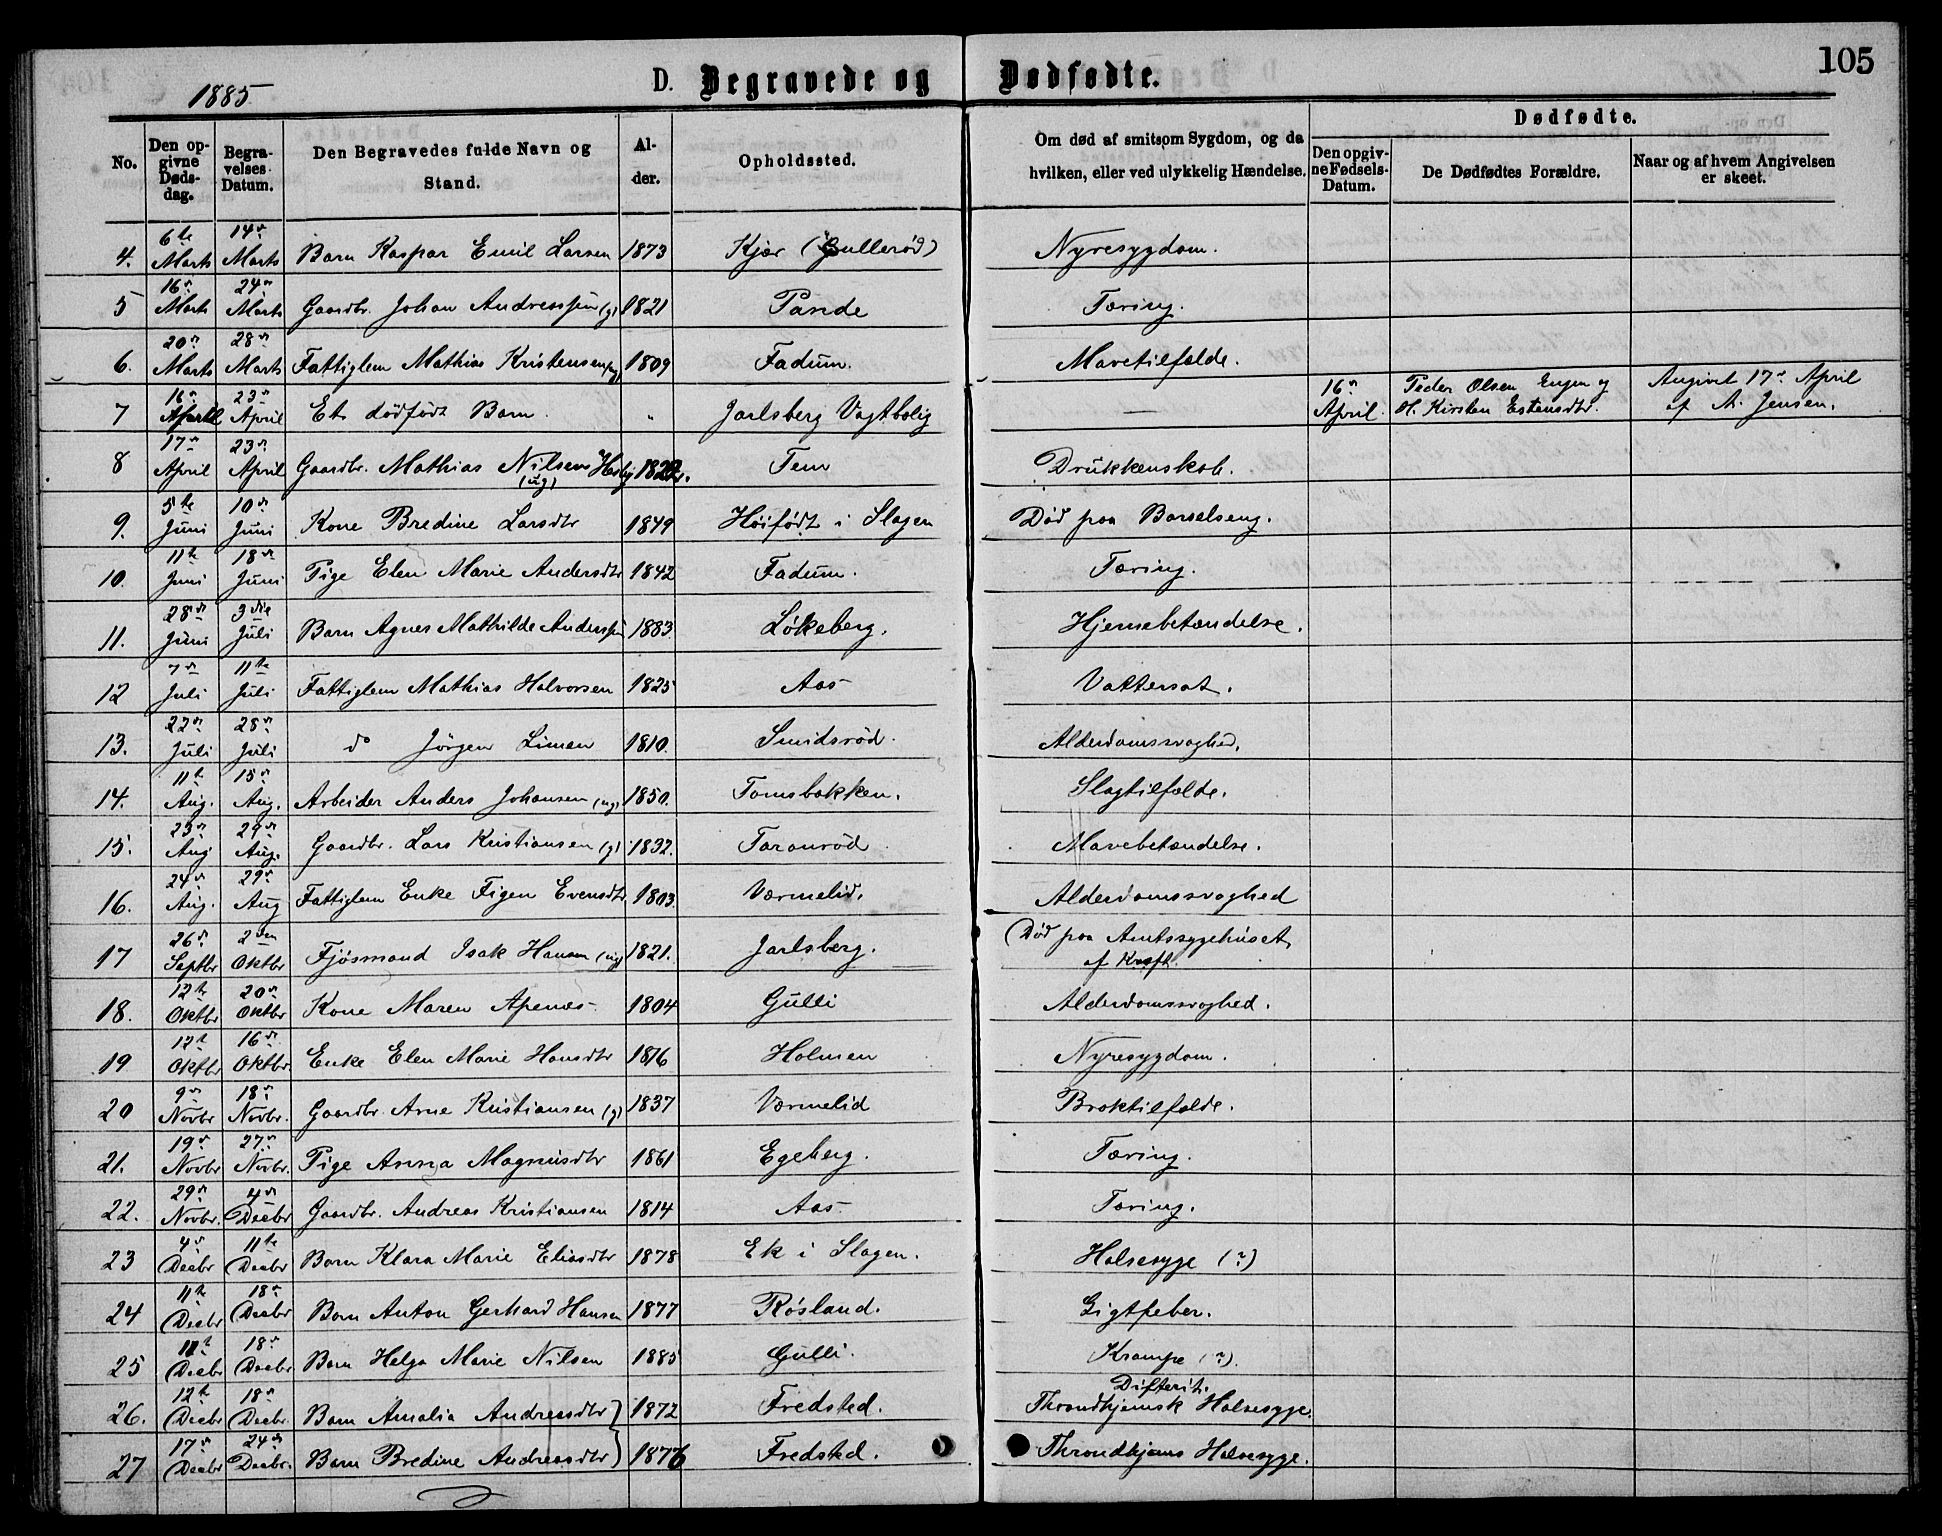 105
1885
D. Begravede og Dødfødte.
No. | Den opgivne Dødsdag. | Begravelses Datum. | Den Begravedes fulde Navn og Stand. | Alder. | Opholdssted. | Om død af smitsom Sygdom, og da hvilken, eller ved ulykkelig Hændelse. | Dødfødte. | Den opgivne Fødsels-Datum. | De Dødfødtes Forældre. | Naar og af hvem Angivelsen er skeet.
4. | 6te Marts | 14de Marts | Barn Kaspar Emil Larsen | 1873 | Kjær (Gullerød) | Nyresygdom.
5 | 16de Marts | 24de Marts | Gaardbr. Johan Andreassen (g) | 1821 | Pande | Tæring.
6. | 20de Marts | 28de Marts | Fattiglem Mathias Kristensen (ug) | 1809 | Fadum. | Mavetilfælde.
7 | 16de April | 23de April | Et dødfødt Barn. | " | Jarlsberg Vagtbolig | — | 16de April. | Peder Olsen Engen og H. Kirsten Estensdtr. | Angivet 17de April af A. Jensen.
8 | 17de April | 23de April | Gaardbr. Mathias Nilsen Hesby (ug) | Tem | Drukkenskab.
9. | 5te Juni | 10de Juni | Kone Bredine Larsdtr | 1849 | Høifødt i Slagen | Død paa Barselseng.
10. | 11te Juni | 18de Juni | Pige Elen Marie Andersdtr | 1842 | Fadum. | Tæring.
11. | 28de Juni | 3die Juli | Barn Agnes Mathilde Anderssen | 1883. | Løkeberg. | Hjernebetændelse.
12 | 7de Juli | 11te Juli | Fattiglem Mathias Halvorsen | 1825 | Aas | Vattersot.
13. | 22de Juli | 28de Juli | do Jørgen Limen | 1810. | Smidsrød. | Alderdomssvaghed.
14. | 11te Aug. | 15de Aug. | Arbeider Anders Johansen (ug) | 1850. | Tomsbakken. | Slagtilfælde.
15. | 23de Aug | 29de Aug. | Gaardbr. Lars Kristiansen (g) | 1832. | Taranrød | Mavebetændelse.
16. | 24de Aug. | 29de Aug | Fattiglem Enke Figen Evensdtr. | 1803. | Værmelid. | Alderdomssvaghed
17 | 26de Septbr | 2den Oktbr | Fjøsmand Isak Hansen (ug) | 1821. | Jarlsberg. | (Død paa Amtssygehuset af Kræft.
18. | 12te Oktbr | 20de Oktbr | Kone Maren Apenæs | 1804 | Gulli | Alderdomssvaghed.
19 | 12te Oktbr | 16de Oktbr. | Enke Elen Marie Hansdtr | 1816 | Holmen | Nyresygdom.
20 | 9de Novbr | 18de Novbr. | Gaardbr. Arne Kristiansen (g) | 1837 | Værmelid | Broktilfælde.
21. | 19de Novbr | 27de Novbr. | Pige Anna Magnusdtr | 1861 | Egeberg. | Tæring.
22. | 29de Novbr. | 4de Decbr | Gaardbr. Andreas Kristiansen | 1814 | Aas | Tæring.
23 | 4de Decbr | 11te Decbr. | Barn Klara Marie Eliasdtr | 1878 | Ek i Slagen. | Halsesyge (?)
24 | 11te Decbr | 18de Decbr | Barn Anton Gerhard Hansen | 1877 | Røsland. | Gigtfeber.
25 | 11te Decbr | 18de Decbr | Barn Helga Marie Nilsen | 1885 | Gulli. | Krampe (?).
26. | 12te Decbr | 18de Decbr. | Barn Amalia Andreasdtr } | 1872 | Fredsted. | Difterit. Throndhjemsk Halsesyge.
27 | 17de Decbr | 24de Decbr. | Barn Bredine Andreasdtr } | 1876 | Fredsted. | Throndhjems Halsesyge.